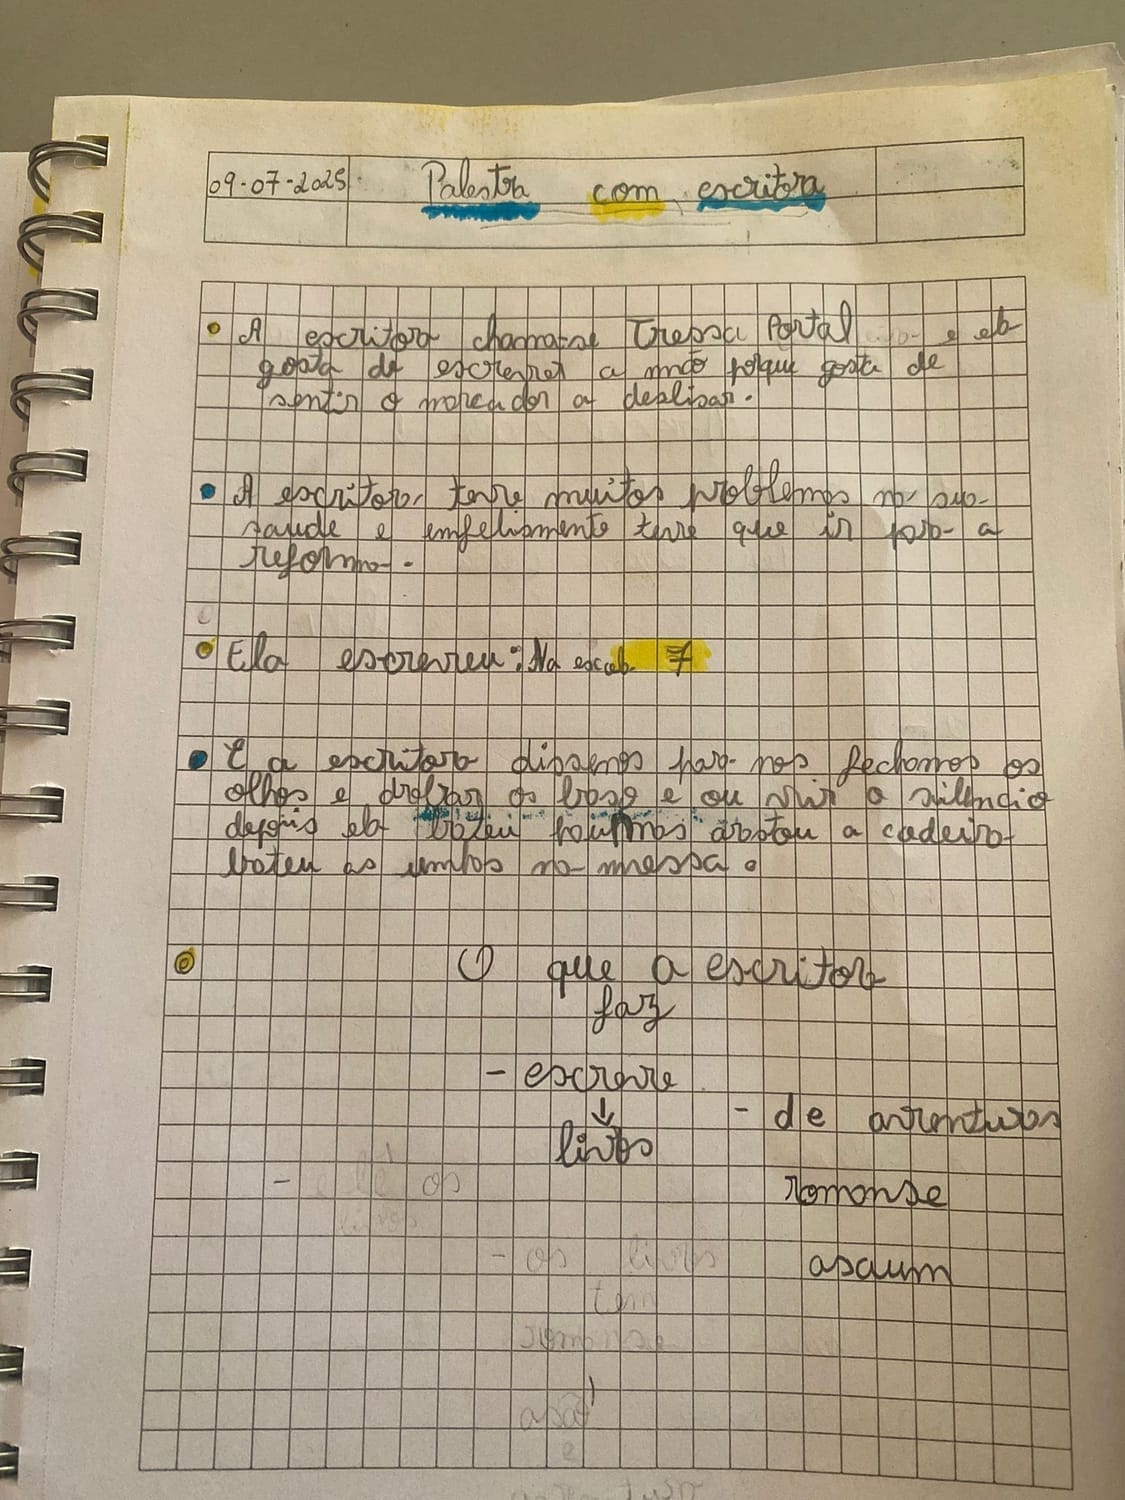 09-07-2025
Palestra com escritora
A escritora chamarse Tressa Portal e ela
gosta de escrever a mão porque gosta de
sentir o marcador a deslisar.
A escritora teve muitos problemas na sua
saude e emfelismente teve que ir para a
reforma.
Ela escreveu: Na escola 7
E a escritora dissemos para nos fechamos os
olhos e os e ou vir o silencio
depois ela bateu palmas a cadeira
bateu as unhas na messa.
O que a escritora
faz
- escreve
↓
livros
- de aventuras
romanse
asaum
- os
- os livros
tem
romanse